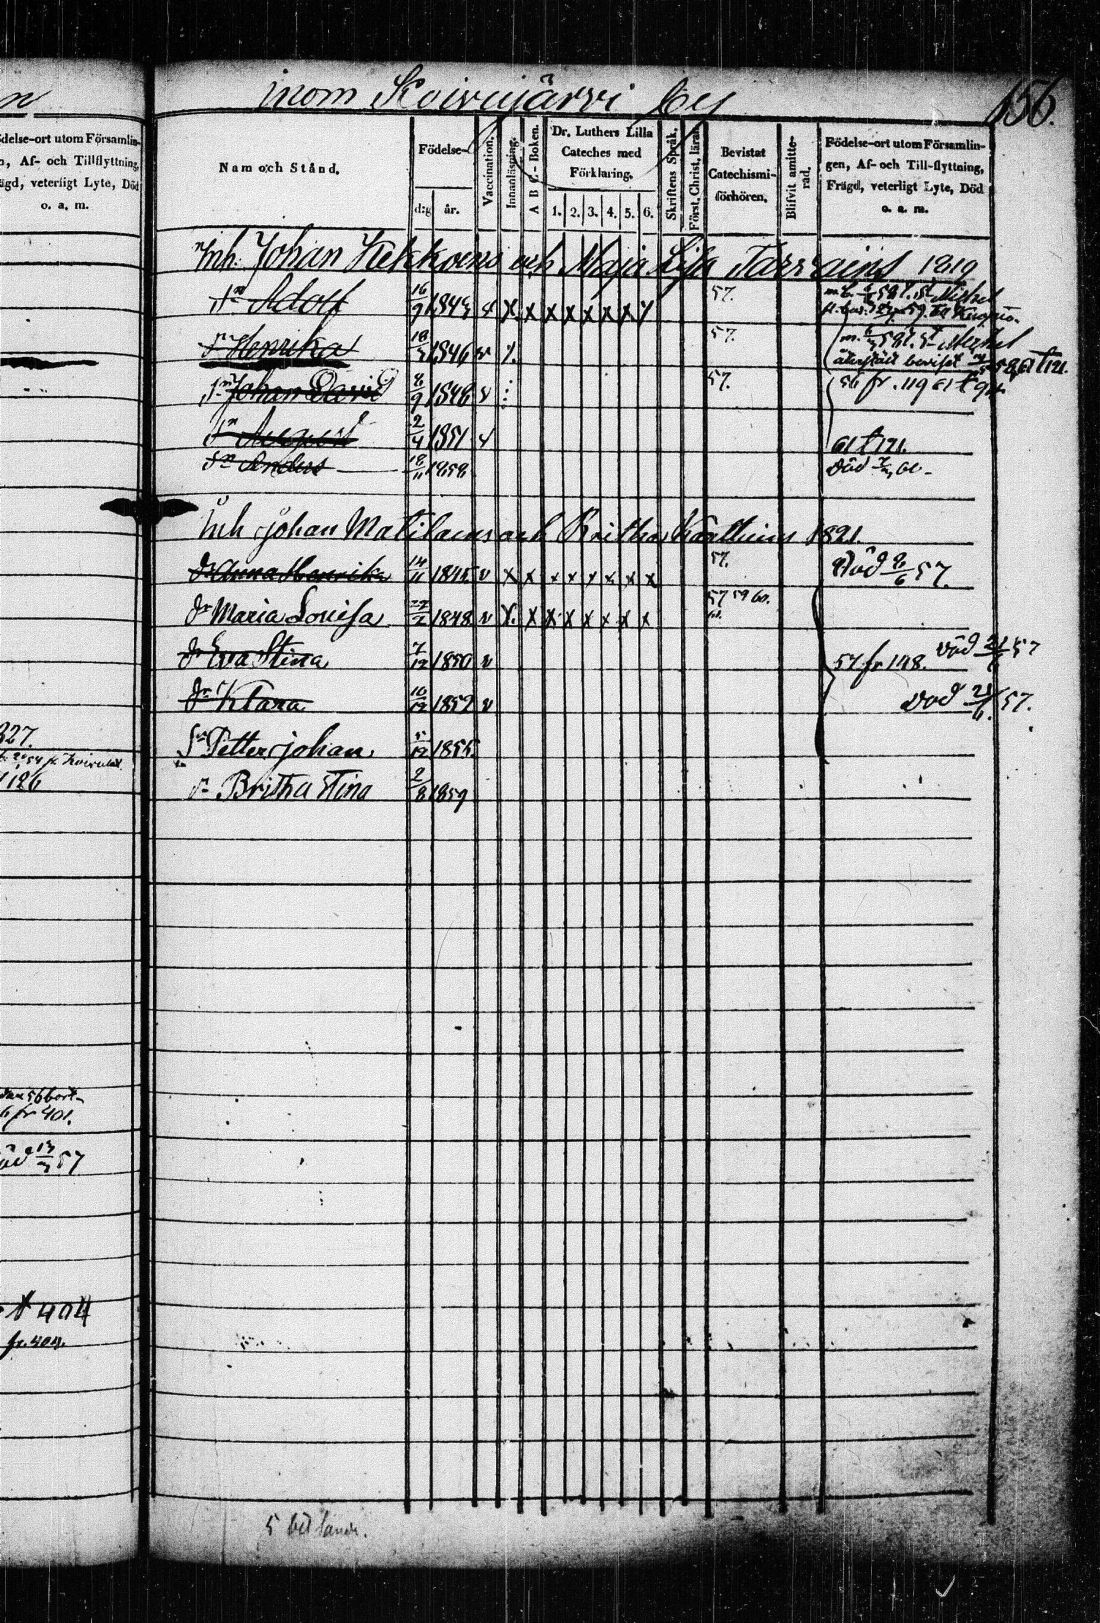 inom Koivujärvi by
156.
ödelse-ort utom Församlin-
n, Af- och Tillflyttning,
rägd, veterligt Lyte, Död
o. a. m.
Nam och Stånd.
Födelse-
d:g år.
Vaccination.
Innanläsning.
A B C-Boken.
Dr. Luthers Lilla
Cateches med
Förklaring.
1. 2. 3. 4. 5. 6.
Skriftens Språk.
Först. Christ. läran
Bevistat
Catechismi-
förhören.
Blifvit amitte-
rad.
Födelse-ort utom Församlin-
gen, Af- och Till-flyttning,
Frägd, veterligt Lyte, Död
o. a. m.
Inh. Johan Hekkoens och Maja Lisa Tarvains 1819
Sn Adolf 16/9 1843 v x x x x x x x x 57.
Henrika 18/3 1846 v 57.
återstält beviset 61 t 121.
Sn Johan David 8/9 1848 v 57. 56 fr. 119 61 t
Sn August 2/4 1851 v 61 t 121.
Sn Anders 18/11 1858 död
Inh Johan Matilains och Britha Kaattins 1821.
dr Anna Henrika 14/11 1845 v x x x x x x x x 57. död 8/6 57.
dr Maria Lovisa 22/2 1848 v x x x x x x x x 57 59 60. 61.
dr Eva Stina 7/12 1850 v 57 fr 148. död 21/6 57
dr Klara 10/12 1852 v död 21/6 57.
Sn Petter Johan 5/12 1855
dr Britha Stina 2/8 1859
327.
54 fr Koivulat
126
56 bort
fr 401.
öd 13/3 57
t 404
fr. 404.
5